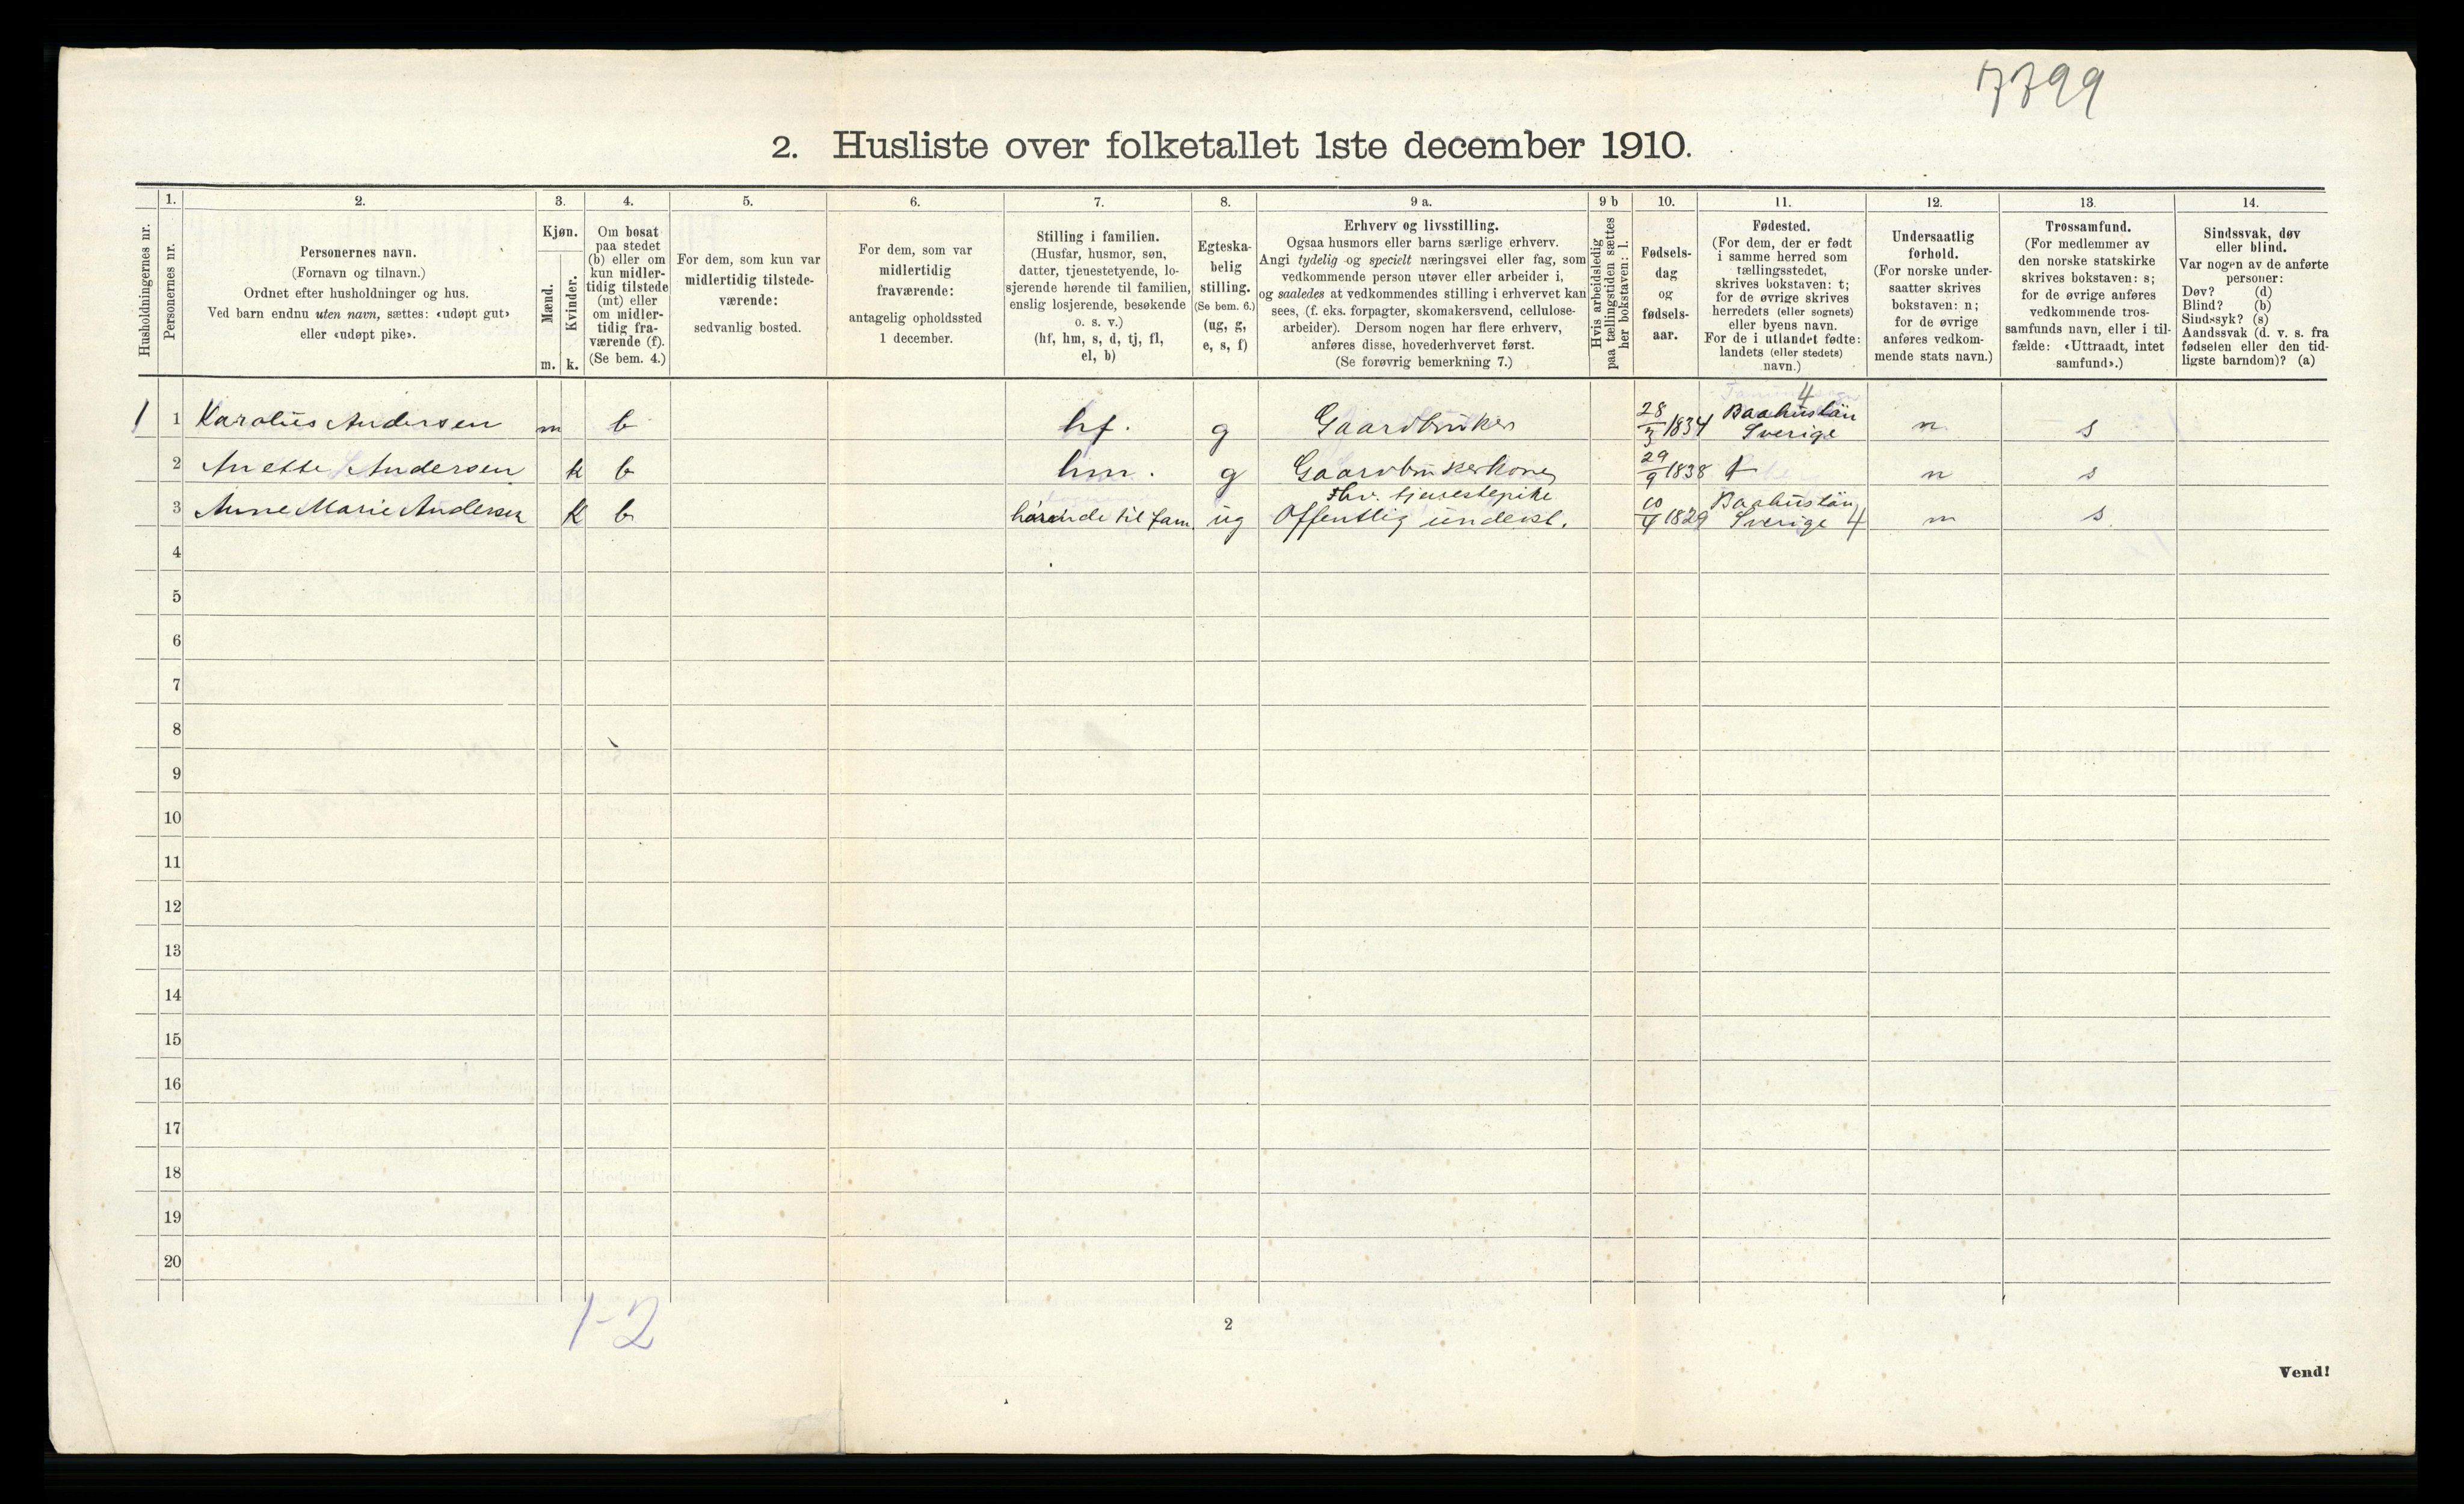 7799
2. Husliste over folketallet 1ste december 1910.
Husholdningernes nr.
1.
Personernes nr.
2.
Personernes navn.
(Fornavn og tilnavn.)
Ordnet efter husholdninger og hus.
Ved barn endnu uten navn, sættes: «udøpt gut»
eller «udøpt pike».
3.
Kjøn.
Mænd.
Kvinder.
m. k.
4.
Om bosat
paa stedet
(b) eller om
kun midler-
tidig tilstede
(mt) eller
om midler-
tidig fra-
værende (f).
(Se bem. 4.)
5.
For dem, som kun var
midlertidig tilstede-
værende:
sedvanlig bosted.
6.
For dem, som var
midlertidig
fraværende:
antagelig opholdssted
1 december.
7.
Stilling i familien.
(Husfar, husmor, søn,
datter, tjenestetyende, lo-
sjerende hørende til familien,
enslig losjerende, besøkende
o. s. v.)
(hf, hm, s, d, tj, fl,
el, b)
8.
Egteska-
belig
stilling.
(Se bem. 6.)
(ug, g,
e, s, f)
9 a.
Erhverv og livsstilling.
Ogsaa husmors eller barns særlige erhverv.
Angi tydelig og specielt næringsvei eller fag, som
vedkommende person utøver eller arbeider i,
og saaledes at vedkommendes stilling i erhvervet kan
sees, (f. eks. forpagter, skomakersvend, cellulose-
arbeider). Dersom nogen har flere erhverv,
anføres disse, hovederhvervet først.
(Se forøvrig bemerkning 7.)
9 b
Hvis arbeidsledig
paa tællingstiden sættes
her bokstaven: l.
10.
Fødsels-
dag
og
fødsels-
aar.
11.
Fødested.
(For dem, der er født
i samme herred som
tællingsstedet,
skrives bokstaven: t;
for de øvrige skrives
herredets (eller sognets)
eller byens navn.
For de i utlandet fødte:
landets (eller stedets)
navn.)
12.
Undersaatlig
forhold.
(For norske under-
saatter skrives
bokstaven: n;
for de øvrige
anføres vedkom-
mende stats navn.)
13.
Trossamfund.
(For medlemmer av
den norske statskirke
skrives bokstaven: s;
for de øvrige anføres
vedkommende tros-
samfunds navn, eller i til-
fælde: «Uttraadt, intet
samfund».)
14.
Sindssvak, døv
eller blind.
Var nogen av de anførte
personer:
Døv? (d)
Blind? (b)
Sindssyk? (s)
Aandssvak (d. v. s. fra
fødselen eller den tid-
ligste barndom)? (a)
4
1 1 Karolius Andersen m b hf. g Gaardbruker 28/3 1834 Baahuslän Sverige n s
2 Anette Andersen k b hm. g Gaardbrukerkone 29/9 1838 t n s
3 Anne Marie Andersen k b hørende til fam. ug Fhv. tjenestepike Offentlig underst. 10/4 1829 Baahuslän Sverige 4 n s
4
5
6
7
8
9
10
11
12
13
14
15
16
17
18
19
20
1-2
2
Vend!